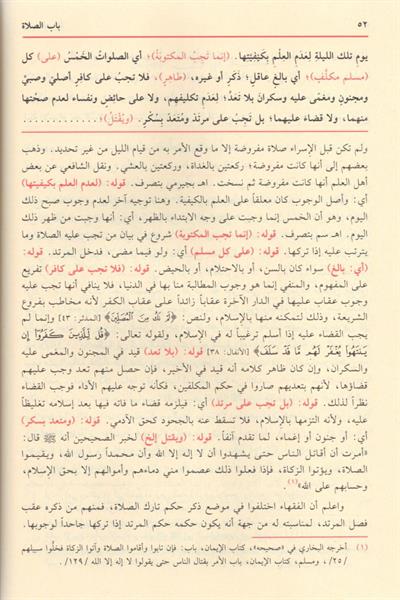 ٥٢
باب الصلاة
يوم تلك الليلةِ لِعَدَمِ العِلْمِ بِكَيْفِيَّتِها. (إنما تَجِبُ المكتوبَةُ)؛ أي الصلواتُ الخَمْسُ (على) كل
(مسلم مكلَّفٍ)؛ أي بالغٍ عاقلٍ؛ ذكَرٍ أو غيره، (طاهِرٍ)، فلا تجبُ على كافرٍ أصليّ وصبيٍّ
ومجنونٍ ومغمًى عليه وسكرانَ بلا تَعَدٍّ؛ لِعَدَمِ تكليفهم، ولا على حائضٍ ونفساء لعدم صحَّتها
منهما، ولا قضاءَ عليهما؛ بل تَجِبُ على مرتدّ ومُتَعَدٍ بِسُكْرٍ. (ويُقْتَلُ)؛ ............
ولم تكن قبل الإسراء صلاة مفروضة إلا ما وقع الأمر به من قيام الليل من غير تحديد. وذهب
بعضهم إلى أنها كانت مفروضة؛ ركعتين بالغداة، وركعتين بالعشي. ونقل الشافعي عن بعض
أهل العلم أنها كانت مفروضة ثم نسخت. اهـ بجيرمي بتصرف. قوله: (لعدم العلم بكيفيتها)
أي: وأصل الوجوب كان معلقاً على العلم بالكيفية. وهنا توجيه آخر لعدم وجوب صبح ذلك
اليوم، وهو أن الخمس إنما وجبت على وجه الابتداء بالظهر، أي: أنها وجبت من ظهر ذلك
اليوم. اهـ سم بتصرف. قوله: (إنما تجب المكتوبة) شروع في بيان من تجب عليه الصلاة وما
يترتب عليه إذا تركها. قوله: (على كل مسلم) أي: ولو فيما مضى، فدخل المرتد. قوله:
(أي: بالغ) سواء كان بالسن، أو بالاحتلام، أو بالحيض. قوله: (فلا تجب على كافر) تفريع
على المفهوم، والمنفي إنما هو وجوب المطالبة منا بها في الدنيا، فلا ينافي أنها تجب عليه
وجوب عقاب عليها في الدار الآخرة عقاباً زائداً على عقاب الكفر لأنه مخاطب بفروع
الشريعة، وذلك لتمكنه منها بالإسلام، ولنص: ﴿لَمْ نَكُ مِنَ ٱلْمُصَلِّينَ﴾ [المدثر: ٤٣] وإنما لم
يجب القضاء عليه إذا أسلم ترغيباً له في الإسلام، ولقوله تعالى: ﴿قُل لِّلَّذِينَ كَفَرُوٓا۟ إِن
يَنتَهُوا۟ يُغْفَرْ لَهُم مَّا قَدْ سَلَفَ﴾ [الأنفال: ٣٨] قوله: (بلا تعد) قيد في المجنون والمغمى عليه
والسكران، وإن كان ظاهر كلامه أنه قيد في الأخير، فإن حصل منهم تعد وجب عليهم
قضاؤها، لأنهم بتعديهم صاروا في حكم المكلفين، فكأنه توجه عليهم الأداء فوجب القضاء
نظراً لذلك. قوله: (بل تجب على مرتد) أي: فيلزمه قضاء ما فاته فيها بعد إسلامه تغليظاً
عليه، ولأنه التزمها بالإسلام، فلا تسقط عنه بالجحود كحق الآدمي. قوله: (ومتعد بسكر)
أي: أو جنون أو إغماء، لما تقدم آنفاً. قوله: (ويقتل إلخ) لخبر الصحيحين أنه ﷺ قال:
«أمرت أن أقاتل الناس حتى يشهدوا أن لا إله إلا الله وأن محمداً رسول الله، ويقيموا
الصلاة، ويؤتوا الزكاة، فإذا فعلوا ذلك عصموا مني دماءهم وأموالهم إلا بحق الإسلام،
وحسابهم على الله»(١).
واعلم أن الفقهاء اختلفوا في موضع ذكر حكم تارك الصلاة، فمنهم من ذكره عقب
فصل المرتد، لمناسبته له من جهة أنه يكون حكمه حكم المرتد إذا تركها جاحداً لوجوبها.
(١) أخرجه البخاري في «صحيحه»، كتاب الإيمان، باب: فإن تابوا وأقاموا الصلاة وآتوا الزكاة فخلُّوا سبيلهم
/٢٥/، ومسلم، كتاب الإيمان، باب الأمر بقتال الناس حتى يقولوا لا إله إلا الله /١٢٩/.